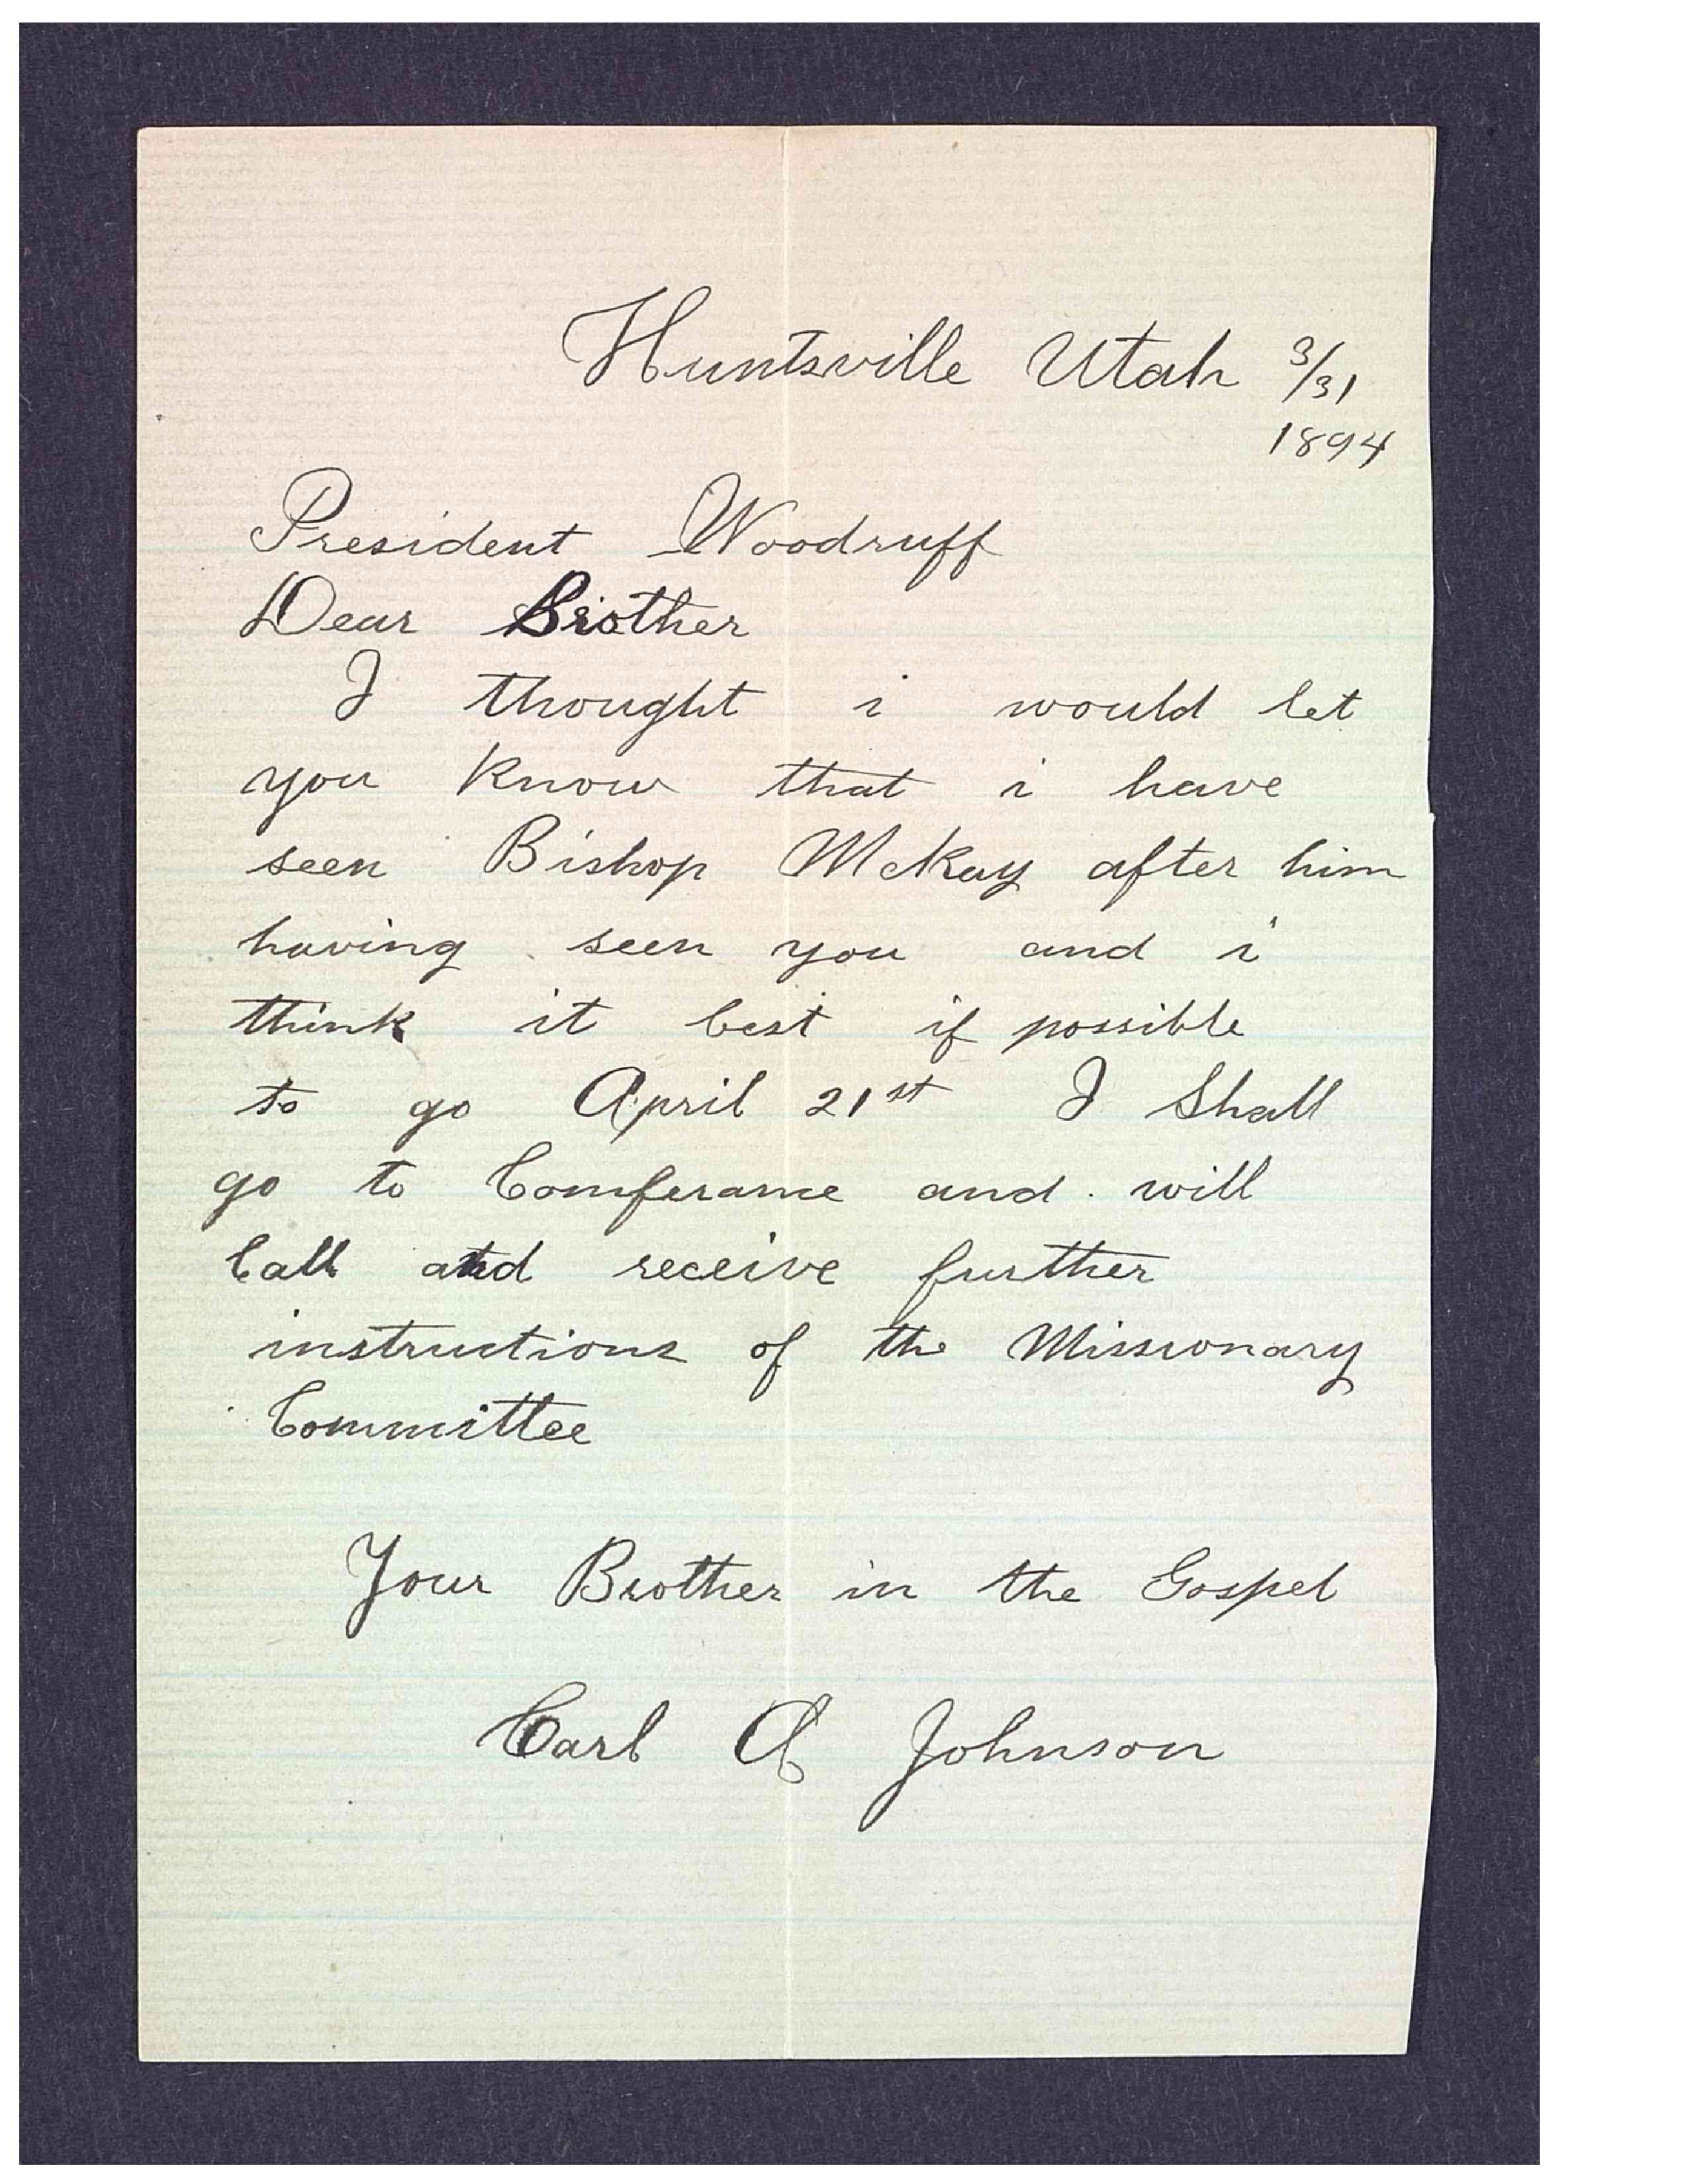 Huntsville Utah 3/31
1894
President Woodruff
Dear Brother
I thought i would let
you know that i have
seen Bishop McKay after him
having seen you and i
think it best if possible
to go April 21st I Shall
go to Comferance and will
Call and receive further
instructions of the Missionary
Committee
Your Brother in the Gospel
Carl A Johnson